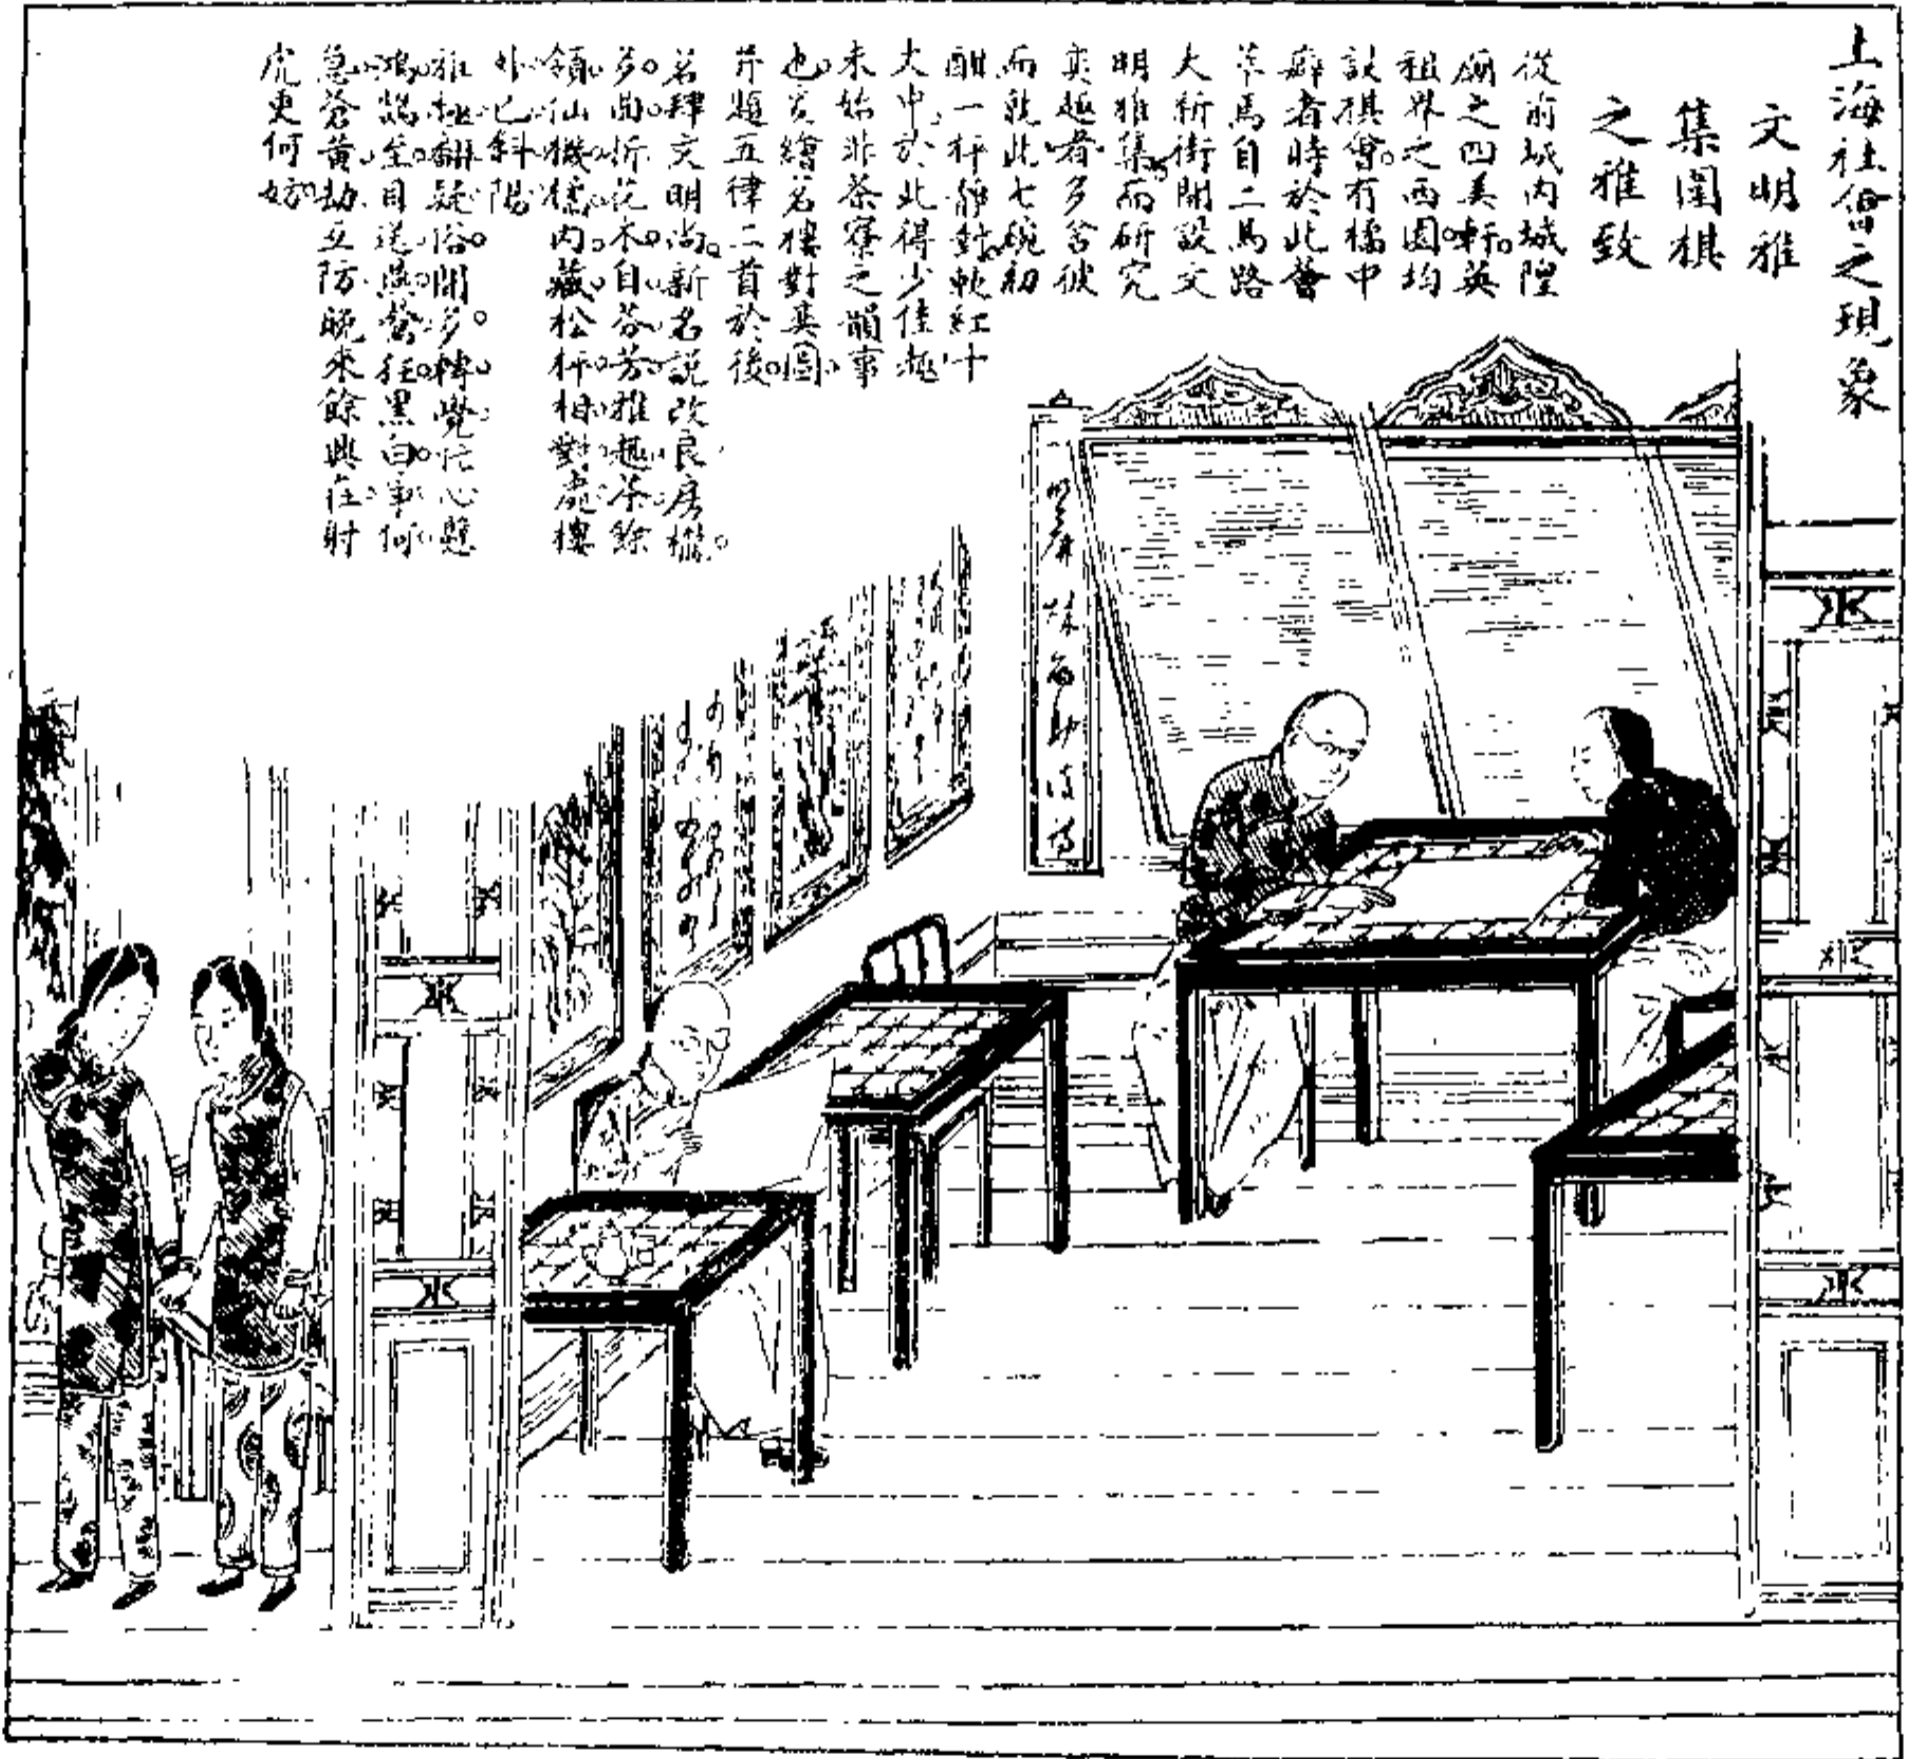 上海社會之現象
文明雅
集圍棋
之雅致
從前城內城隍
廟之四美軒英
租界之西園均
設棋會有橘中
癖者時於此薈
萃焉自二馬路
大新街開設文
明雅集而研究
奕趣者多舍彼
而就此七碗初
酣一枰靜對軟紅十
丈中於此得少佳趣
未始非茶寮之韻事
也爰繪茗樓對奕圖
并題五律二首於後
茗肆文明尚新名說改良房櫳
多曲折花木自芬芳雅趣茶餘
領仙機橘內藏松枰相對處樓
外已斜陽
雅極翻疑俗閒多轉覺忙心懸
鴻鵠至目送燕鶯狂黑白爭何
急蒼黃劫互防晚來餘興在射
虎更何妨